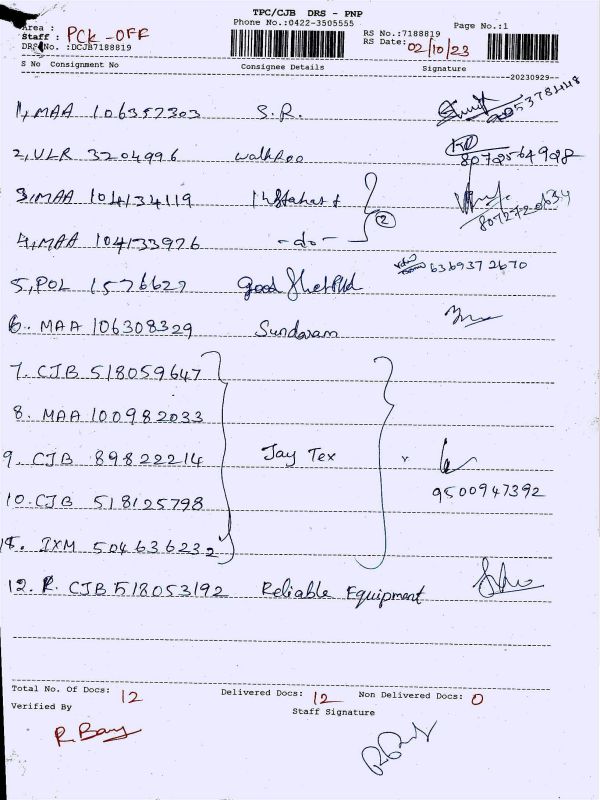 TPC/CJB DRS - PNP
Area : Phone No.:0422-3505555 RS No.:7188819 Page No.:1
Staff : PCK-OFF RS Date: 02/10/23
DRS No. :DCJB7188819
S No Consignment No Consignee Details Signature
20230929
1, MAA 106357303 S.R.
2, VLR 3204996 walkroo 8072564928
3, MAA 104134119
4, MAA 104133976 -do- 2
5, POL 1576627 Good 6369372670
6. MAA 106308329 Sundaram
7. CJB 518059647
8. MAA 100982033
9. CJB 89822214 Jay Tex
10. CJB 518125798 9500947392
IXM 504636232
12. CJB 518053192 Reliable Equipment
Total No. Of Docs: 12 Delivered Docs: 12 Non Delivered Docs: 0
Verified By Staff Signature